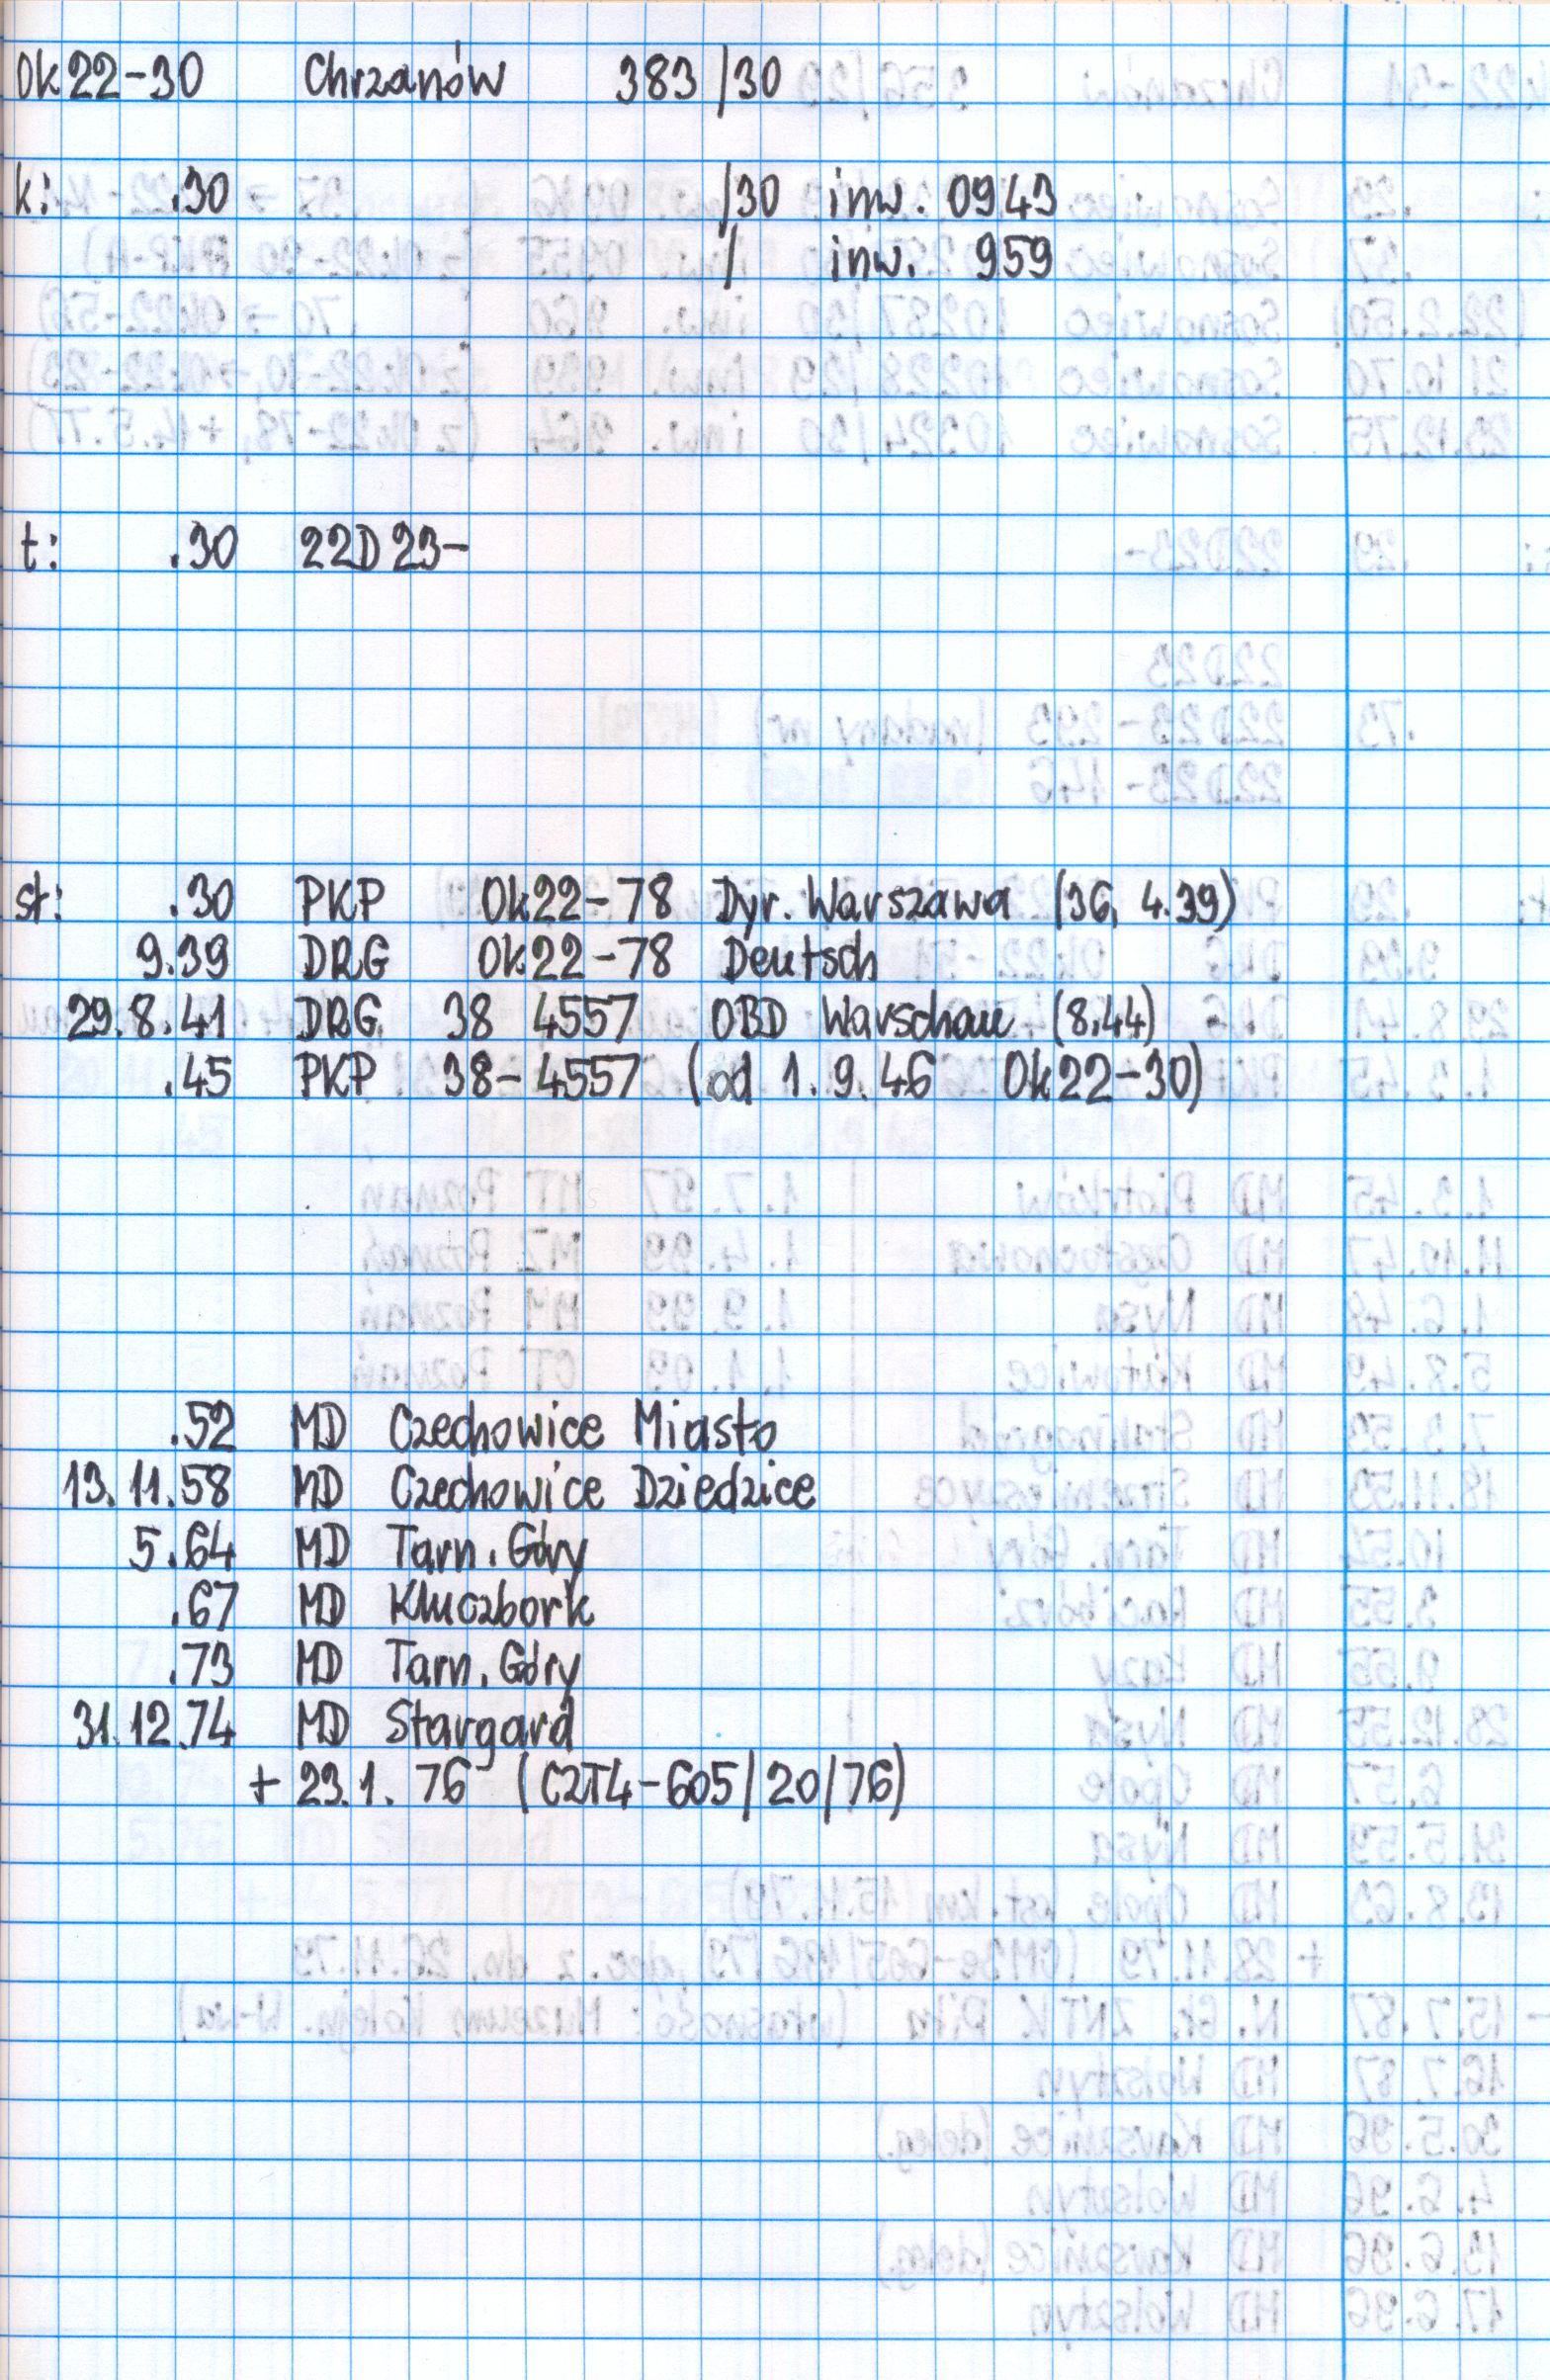 Ok22-30 Chrzanów 383/30
k: .30 /30 inw. 0943
/ inw. 959
t: .30 22D23-
st: .30 PKP Ok22-78 Dyr. Warszawa (36, 4.39)
9.39 DRG Ok22-78 Deutsch
29.8.41 DRG 38 4557 OBD Warschau (8.44)
.45 PKP 38-4557 (od 1.9.46 Ok22-30)
.52 MD Czechowice Miasto
13.11.58 MD Czechowice Dziedzice
5.64 MD Tarn. Góry
.67 MD Kluczbork
.73 MD Tarn. Góry
31.12.74 MD Stargard
+ 23.1.76 (CZT4-605/20/76)